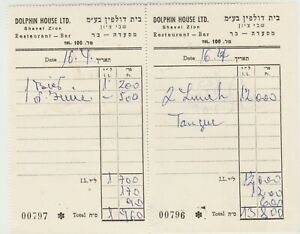 DOLPHIN HOUSE LTD.
בית דולפין בע״מ
Shavei Zion
שבי ציון
Restaurant - Bar
מסעדה - בר
TEL. 100 .טל
תאריך
16.4
1 200
500
IL. ל״י
1 700
170
90
1 960
00797 * Total סה״כ
DOLPHIN HOUSE LTD.
בית דולפין בע״מ
Shavei Zion
שבי ציון
Restaurant - Bar
מסעדה - בר
TEL. 100 .טל
תאריך
16.4
2 Lunch 12,000
IL. ל״י
12,000
1,200
600
13,800
00796 * Total סה״כ